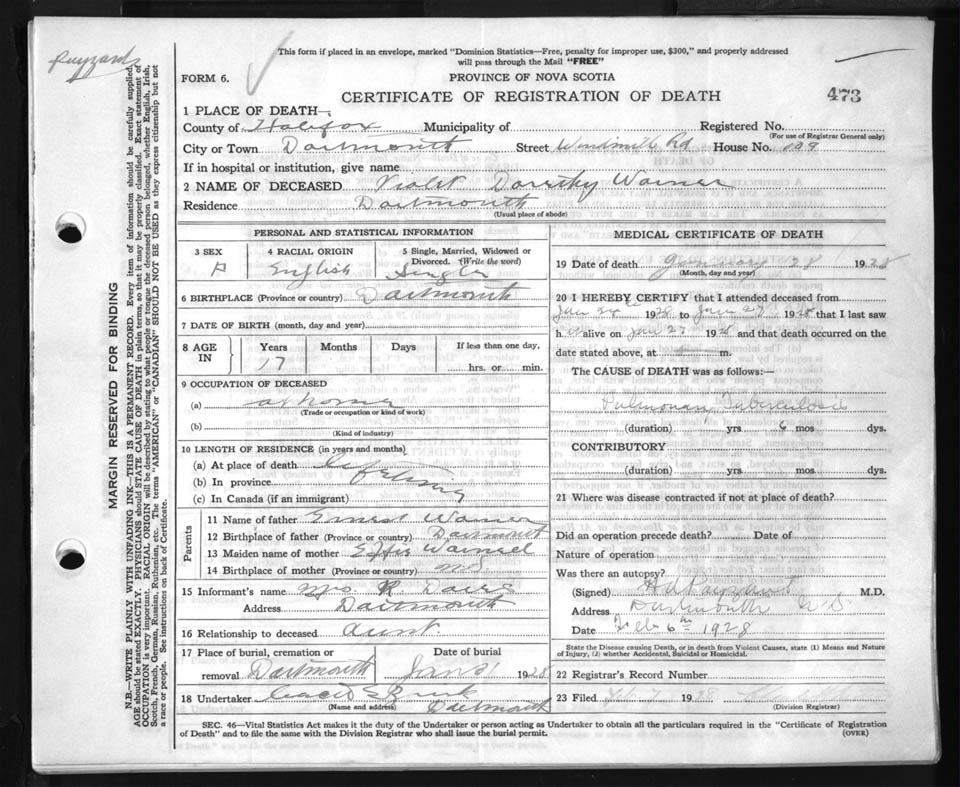 This form if placed in an envelope, marked "Dominion Statistics—Free, penalty for improper use, $300," and properly addressed
will pass through the Mail "FREE"
FORM 6.
PROVINCE OF NOVA SCOTIA
CERTIFICATE OF REGISTRATION OF DEATH
473
1 PLACE OF DEATH—
County of Halifax Municipality of Registered No.
(For use of Registrar General only)
City or Town Dartmouth Street Windmill Rd House No. 109
If in hospital or institution, give name
2 NAME OF DECEASED Violet Dorothy Warner
Residence Dartmouth
(Usual place of abode)
PERSONAL AND STATISTICAL INFORMATION
3 SEX 4 RACIAL ORIGIN 5 Single, Married, Widowed or
Divorced. (Write the word)
English Single
6 BIRTHPLACE (Province or country) Dartmouth
7 DATE OF BIRTH (month, day and year)
8 AGE IN Years Months Days If less than one day,
17 hrs. or min.
9 OCCUPATION OF DECEASED
(a) at home
(Trade or occupation or kind of work)
(b)
(Kind of industry)
10 LENGTH OF RESIDENCE (in years and months)
(a) At place of death
(b) In province
(c) In Canada (if an immigrant)
Parents
11 Name of father Ernest Warner
12 Birthplace of father (Province or country) Dartmouth
13 Maiden name of mother
14 Birthplace of mother (Province or country) NS
15 Informant's name Mrs R Davis
Address Dartmouth
16 Relationship to deceased aunt.
17 Place of burial, cremation or Date of burial
removal Dartmouth Jan 31 1928
18 Undertaker
(Name and address) Dartmouth
MEDICAL CERTIFICATE OF DEATH
19 Date of death January 28 1928
(Month, day and year)
20 I HEREBY CERTIFY that I attended deceased from
Jan 24 1928 to Jan 27 1928 that I last saw
her alive on Jan 27 1928 and that death occurred on the
date stated above, at m.
The CAUSE of DEATH was as follows:—
Pulmonary Tuberculosis
(duration) yrs 6 mos dys.
CONTRIBUTORY
(duration) yrs. mos. dys.
21 Where was disease contracted if not at place of death?
Did an operation precede death? Date of
Nature of operation
Was there an autopsy?
(Signed) M.D.
Address Dartmouth N S
Date Feb 6th 1928
State the Disease causing Death, or in death from Violent Causes, state (1) Means and Nature
of Injury, (2) whether Accidental, Suicidal or Homicidal.
22 Registrar's Record Number
23 Filed 7 1928
(Division Registrar)
SEC. 46—Vital Statistics Act makes it the duty of the Undertaker or person acting as Undertaker to obtain all the particulars required in the "Certificate of Registration
of Death" and to file the same with the Division Registrar who shall issue the burial permit.
(OVER)
MARGIN RESERVED FOR BINDING
N.B.—WRITE PLAINLY WITH UNFADING INK—THIS IS A PERMANENT RECORD. Every item of information should be carefully supplied.
AGE should be stated EXACTLY. PHYSICIANS should STATE CAUSE OF DEATH in plain terms, so that it may be properly classified. Exact statement of
OCCUPATION is very important. RACIAL ORIGIN will be described by stating to what people or tongue the deceased person belonged, whether English, Irish,
Scotch, French, German, Russian, Ruthenian, etc. The terms "AMERICAN" or "CANADIAN" SHOULD NOT BE USED as they express citizenship but not
a race or people. See instructions on back of Certificate.